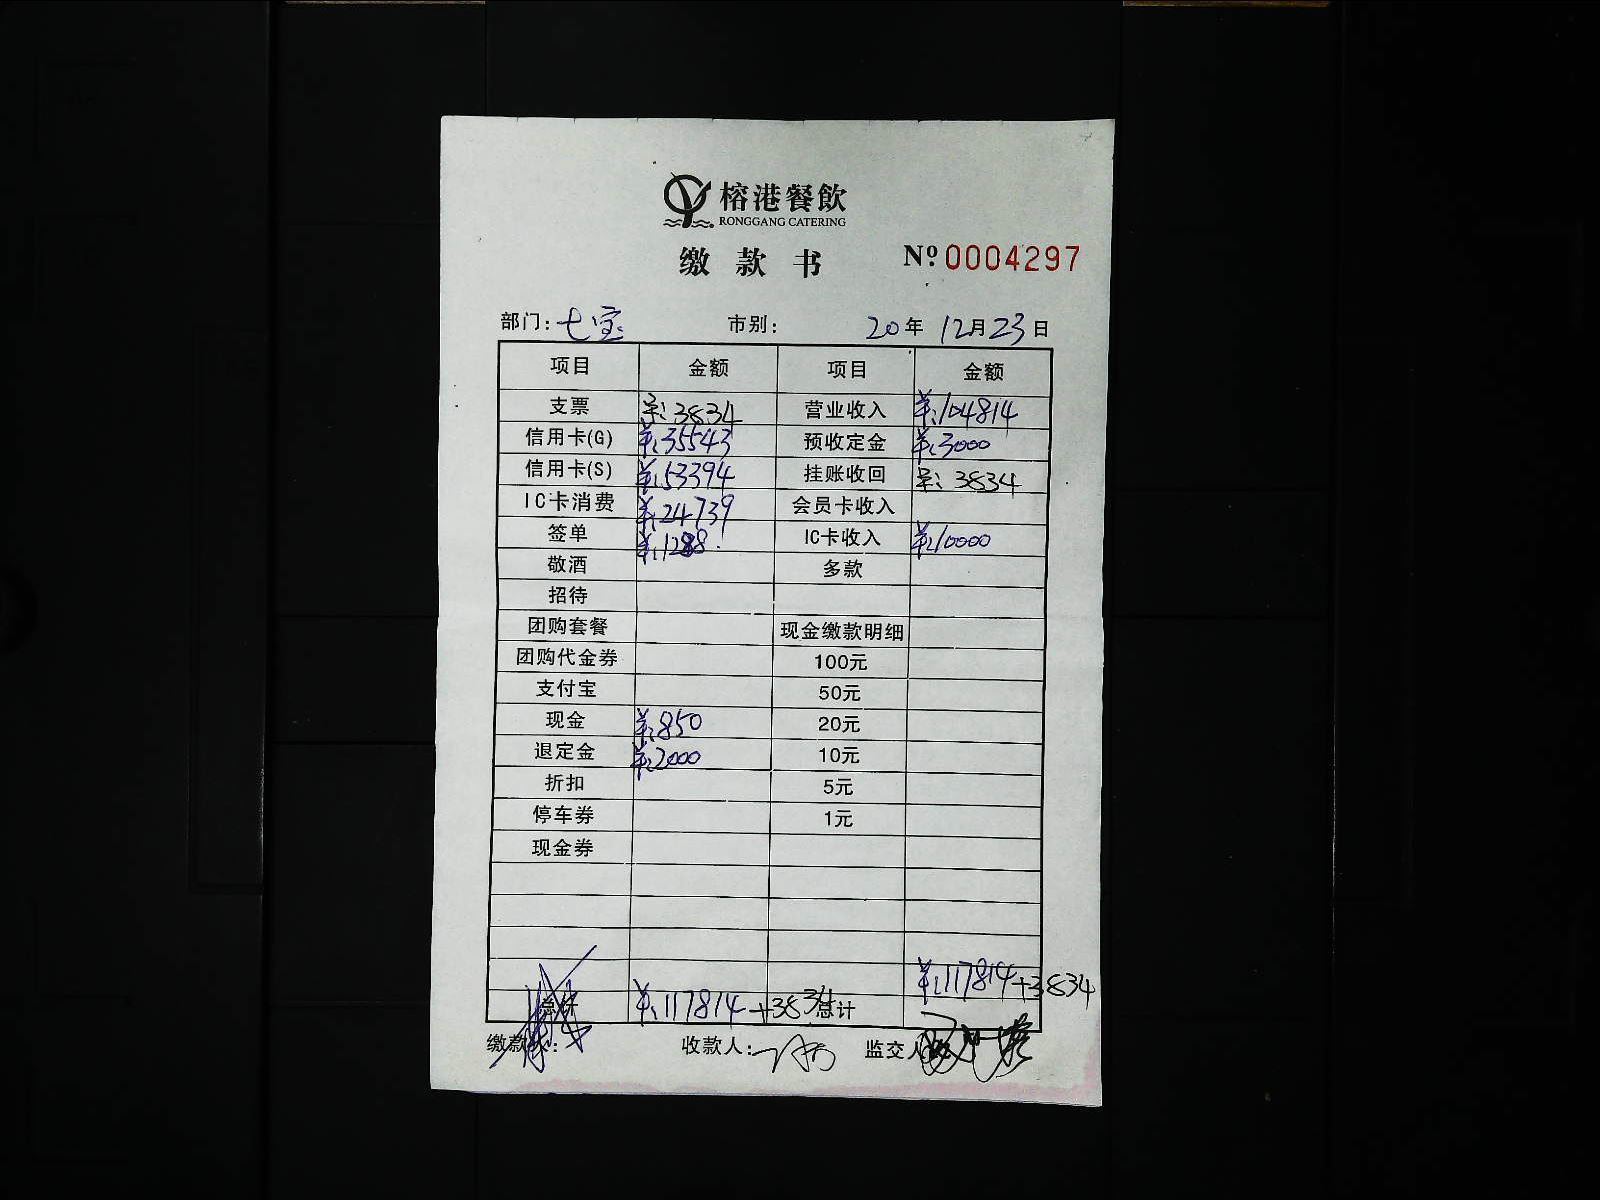 榕港餐飲
RONGGANG CATERING
缴款书 Nº 0004297
部门: 七宝 市别: 20年 12月 23日
项目 金额 项目 金额
支票 ¥: 3834 营业收入 ¥: 104814
信用卡(G) ¥: 35543 预收定金 ¥: 3000
信用卡(S) ¥: 53394 挂账收回 ¥: 3834
IC卡消费 ¥: 24739 会员卡收入
签单 ¥: 1288 IC卡收入 ¥: 10000
敬酒 多款
招待
团购套餐 现金缴款明细
团购代金券 100元
支付宝 50元
现金 ¥: 850 20元
退定金 ¥: 2000 10元
折扣 5元
停车券 1元
现金券
总计 ¥: 117814+3834 总计 ¥: 117814+3834
缴款人: 收款人: 监交人: